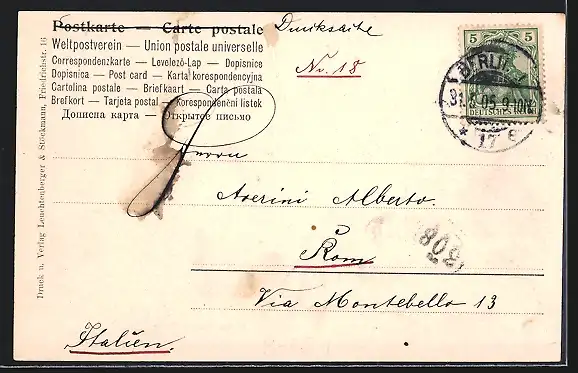 Postkarte — Carte postale
Drucksache
Weltpostverein — Union postale universelle
Correspondenzkarte — Levelező-Lap — Dopisnice
Dopisnica — Post card — Karta korespondencyjna
Cartolina postale — Briefkaart — Carta postala
Brefkort — Tarjeta postal — Korespondenčni listek
Дописна карта — Открытое письмо
Nr. 18
5 5
BERLIN
31. 05. 9-10N.
DEUTSCHES REICH
* 17
Herrn
Averini Alberto.
808
Rom
Via Montebello 13
Italien.
Druck u. Verlag Leuchtenberger & Stockmann, Friedrichstr. 16